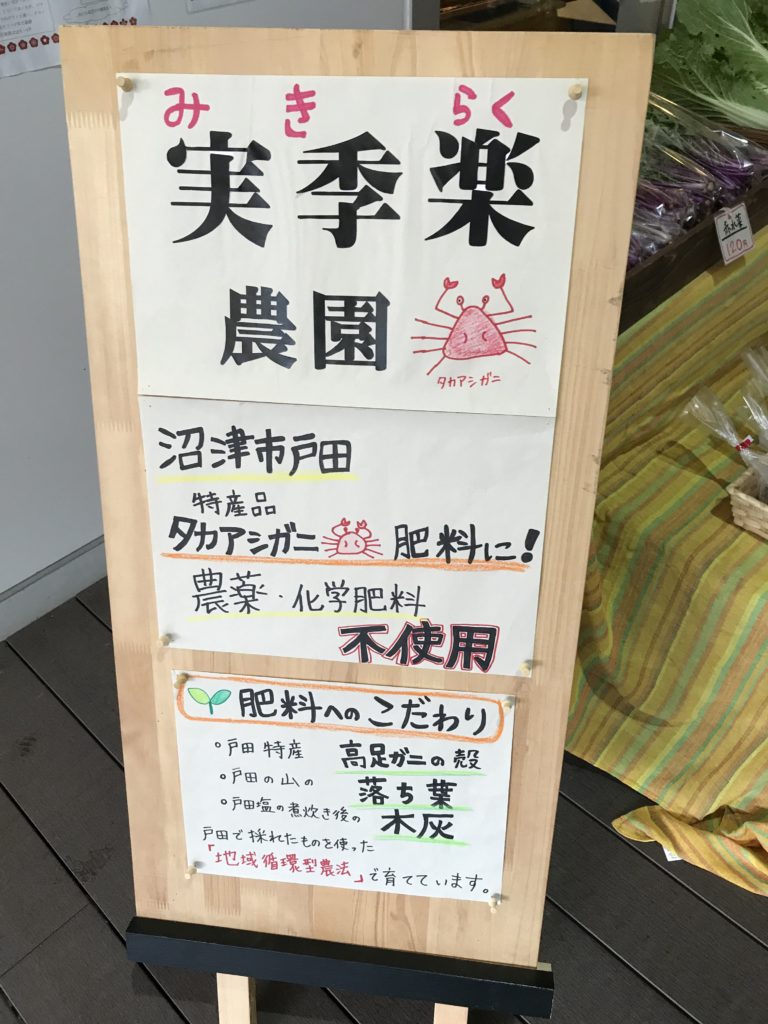 み き らく
実季楽
農園
タカアシガニ
沼津市戸田
特産品
タカアシガニ 肥料に!
農薬・化学肥料
不使用
肥料へのこだわり
○戸田特産 高足ガニの殻
○戸田の山の 落ち葉
○戸田塩の煮炊き後の 木灰
戸田で採れたものを使った
「地域循環型農法」で育てています。
赤水菜
120円